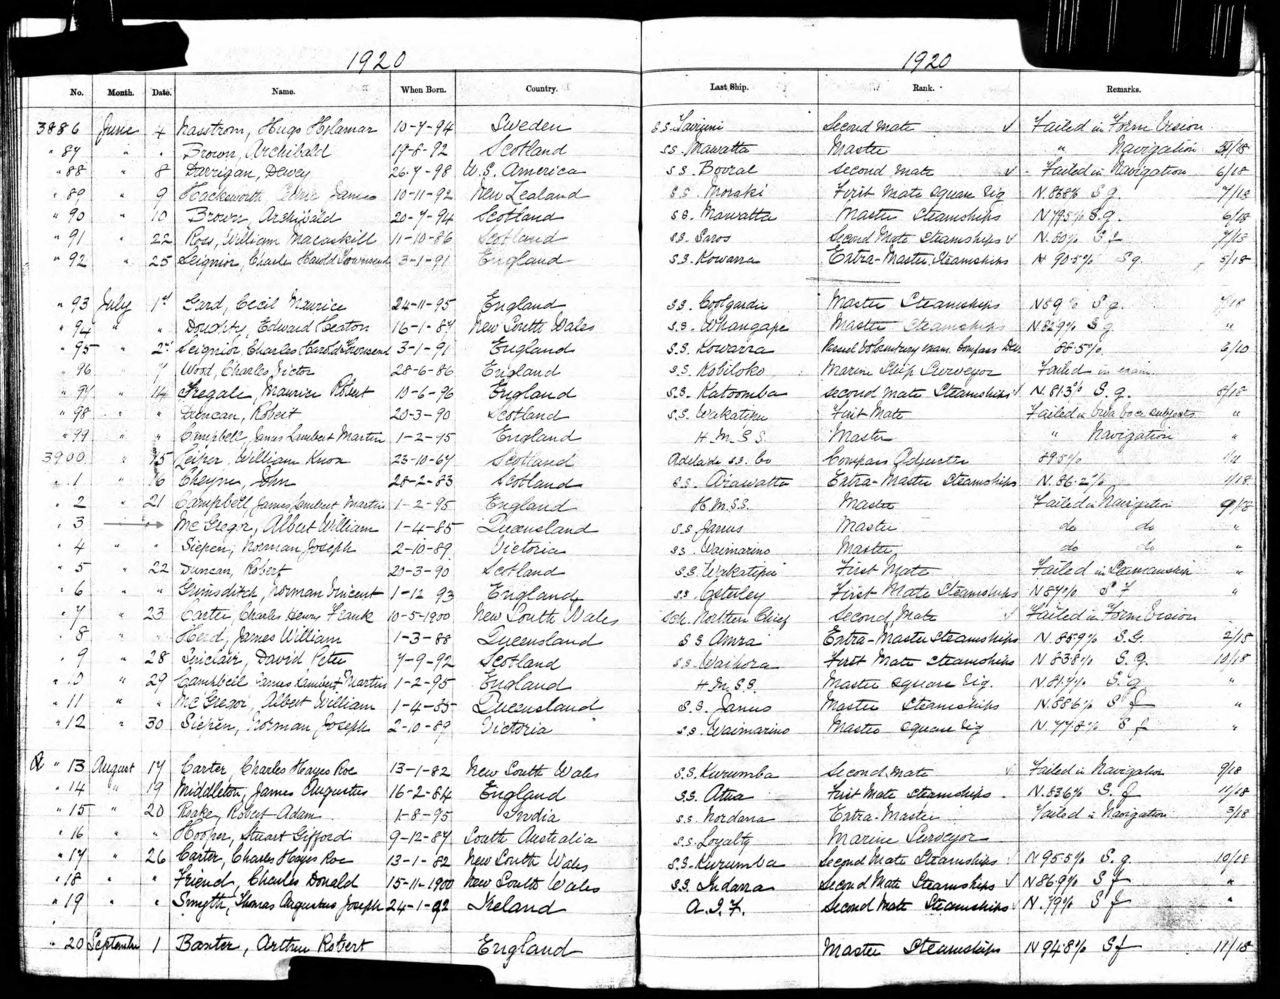 1920 1920
No. Month. Date. Name. When Born. Country. Last Ship. Rank. Remarks.
3886 June 4 Nasstrom, Hugo Hjalmar 10-7-94 Sweden S.S. Second Mate ✓ Failed in Form Vision
" 87 " " Brown, Archibald 19-8-92 Scotland S.S. Mawatta Master " Navigation /18
" 88 " 8 Darrigan, Dewey 26-7-98 U.S. America S.S. Booral Second Mate ✓ Failed in Navigation 6/18
" 89 " 9 Hacksworth James 10-11-92 New Zealand S.S. Moraki First Mate Square Rig N. 88.8% S.g. 7/18
" 90 " 10 Brown, Archibald 20-7-94 Scotland S.S. Mawatta Master Steamships N 79.5% S.g. 6/18
" 91 " 22 Ross, William Macaskill 11-10-86 Scotland S.S. Saros Second Mate Steamships ✓ N. 80% S f 7/18
" 92 " 25 Seignior, Charles Harold Townsend 3-1-91 England S.S. Kowarra Extra-Master Steamships N 90.5% S g. 5/18
" 93 July 1st Gard, Cecil Maurice 24-11-95 England S.S. Coolgardie Master Steamships N 59% S g. /18
" 94 " " Doughty, Edward Heaton 16-1-87 New South Wales S.S. Whangape Master Steamships N 82.9% S g. "
" 95 " 2nd Seignior, Charles Harold Townsend 3-1-91 England S.S. Kowarra Passed Voluntary exam. Compass Dev. 88.5%
" 96 " 7 Wood, Charles Victor 28-6-86 England S.S. Kobiloko Marine Ship Surveyor Failed in exam.
" 97 " 14 Tregale, Maurice Robert 10-6-96 England S.S. Katoomba Second Mate Steamships ✓ N. 81.3% S. g. 8/18
" 98 " " Duncan, Robert 20-3-90 Scotland S.S. Wakatipu First Mate Failed in subjects "
" 99 " " Campbell, James Lambert Martin 1-2-95 England H.M.S.S. Master " Navigation "
3900 " 15 Leiper, William Knox 23-10-67 Scotland Adelaide S.S. Co Compass Adjuster 89.5%
" 1 " 16 Cheyne, John 28-2-83 Scotland S.S. Arawatta Extra-Master Steamships N. 86.2% /18
" 2 " 21 Campbell, James Lambert Martin 1-2-95 England H.M.S.S. Master Failed in Navigation 9/18
" 3 " " McGregor, Albert William 1-4-85 Queensland S.S. Janus Master do do "
" 4 " " Siepen, Norman Joseph 2-10-89 Victoria S.S. Waimarino Master do do "
" 5 " 22 Duncan, Robert 20-3-90 Scotland S.S. Wakatipu First Mate Failed in Seamanship "
" 6 " " Grimsditch, Norman Vincent 1-12 93 England S.S. Osterley First Mate Steamships N 87% S F "
" 7 " 23 Carter, Charles Henry Frank 10-5-1900 New South Wales Sch. Northern Chief Second Mate ✓ Failed in Form Vision
" 8 " " Herd, James William 1-3-88 Queensland S S Amra Extra-Master Steamships N. 85.9% S.G. 2/18
" 9 " 28 Sinclair, David Peter 7-9-92 Scotland S.S. Waihora First Mate Steamships N 83.8% S. g. 10/18
" 10 " 29 Campbell James Lambert Martin 1-2-95 England H.M.S.S. Master Square Rig. N. 81.7% S. g "
" 11 " " McGregor, Albert William 1-4-85 Queensland S.S. Janus Master Steamships N. 88.6% S f "
" 12 " 30 Siepen, Norman Joseph 2-10-89 Victoria S.S. Waimarino Master Square Rig N. 77.8% S f "
" 13 August 17 Carter, Charles Hayes Roe 13-1-82 New South Wales S.S. Kurumba Second Mate ✓ Failed in Navigation 9/18
" 14 " 19 Middleton, James Augustus 16-2-84 England S.S. Atua First Mate Steamships N. 83.6% S. f 11/18
" 15 " 20 Roake, Robert Adam 1-8-95 India S.S. Nordana Extra-Master Failed in Navigation 3/18
" 16 " " Hooper, Stuart Gifford 9-12-87 South Australia S.S. Loyalty Marine Surveyor
" 17 " 26 Carter, Charles Hayes Roe 13-1-82 New South Wales S.S. Kurumba Second Mate Steamships ✓ N 95.5% S. g. 10/18
" 18 " " Friend, Charles Donald 15-11-1900 New South Wales S.S. Indarra Second Mate Steamships ✓ N 86.9% S f "
" 19 " " Smyth, Thomas Augustus Joseph 24-1-92 Ireland A.I.F. Second Mate Steamships ✓ N. 79% S f "
" 20 September 1 Baxter, Arthur Robert England Master Steamships N 94.8% S f 11/18